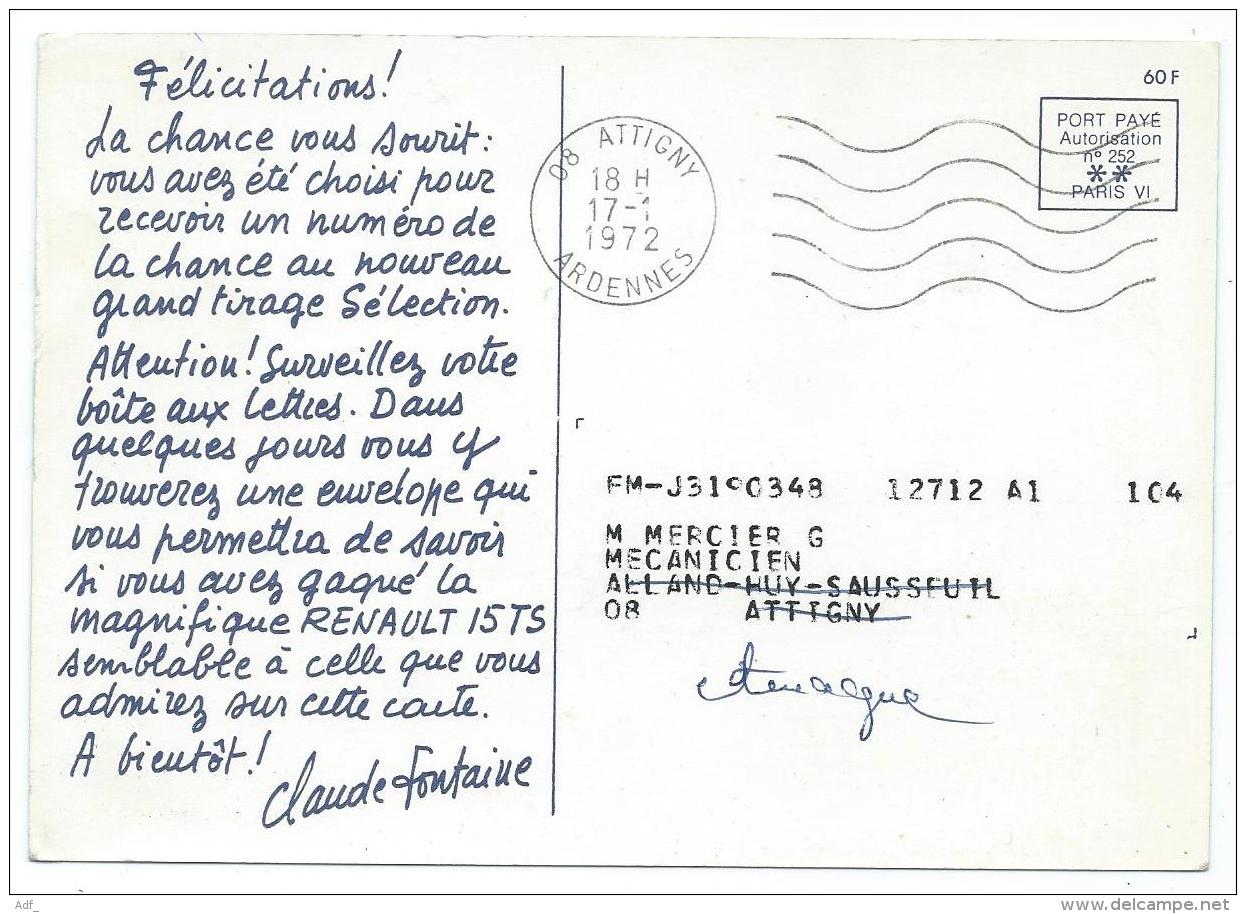 Félicitations!
La chance vous sourit:
vous avez été choisi pour
recevoir un numéro de
la chance au nouveau
grand tirage Sélection.
Attention! Surveillez votre
boîte aux lettres. Dans
quelques jours vous y
trouverez une enveloppe qui
vous permettra de savoir
si vous avez gagné la
magnifique RENAULT 15 TS
semblable à celle que vous
admirez sur cette carte.
A bientôt!
Claude Fontaine
60 F
PORT PAYÉ
Autorisation
n° 252
**
PARIS VI
08 ATTIGNY
18 H
17-1
1972
ARDENNES
FM-J3190348 12712 A1 104
M MERCIER G
MECANICIEN
ALLAND-HUY-SAUSSEUIL
08 ATTIGNY
Adf_
www.delcampe.net